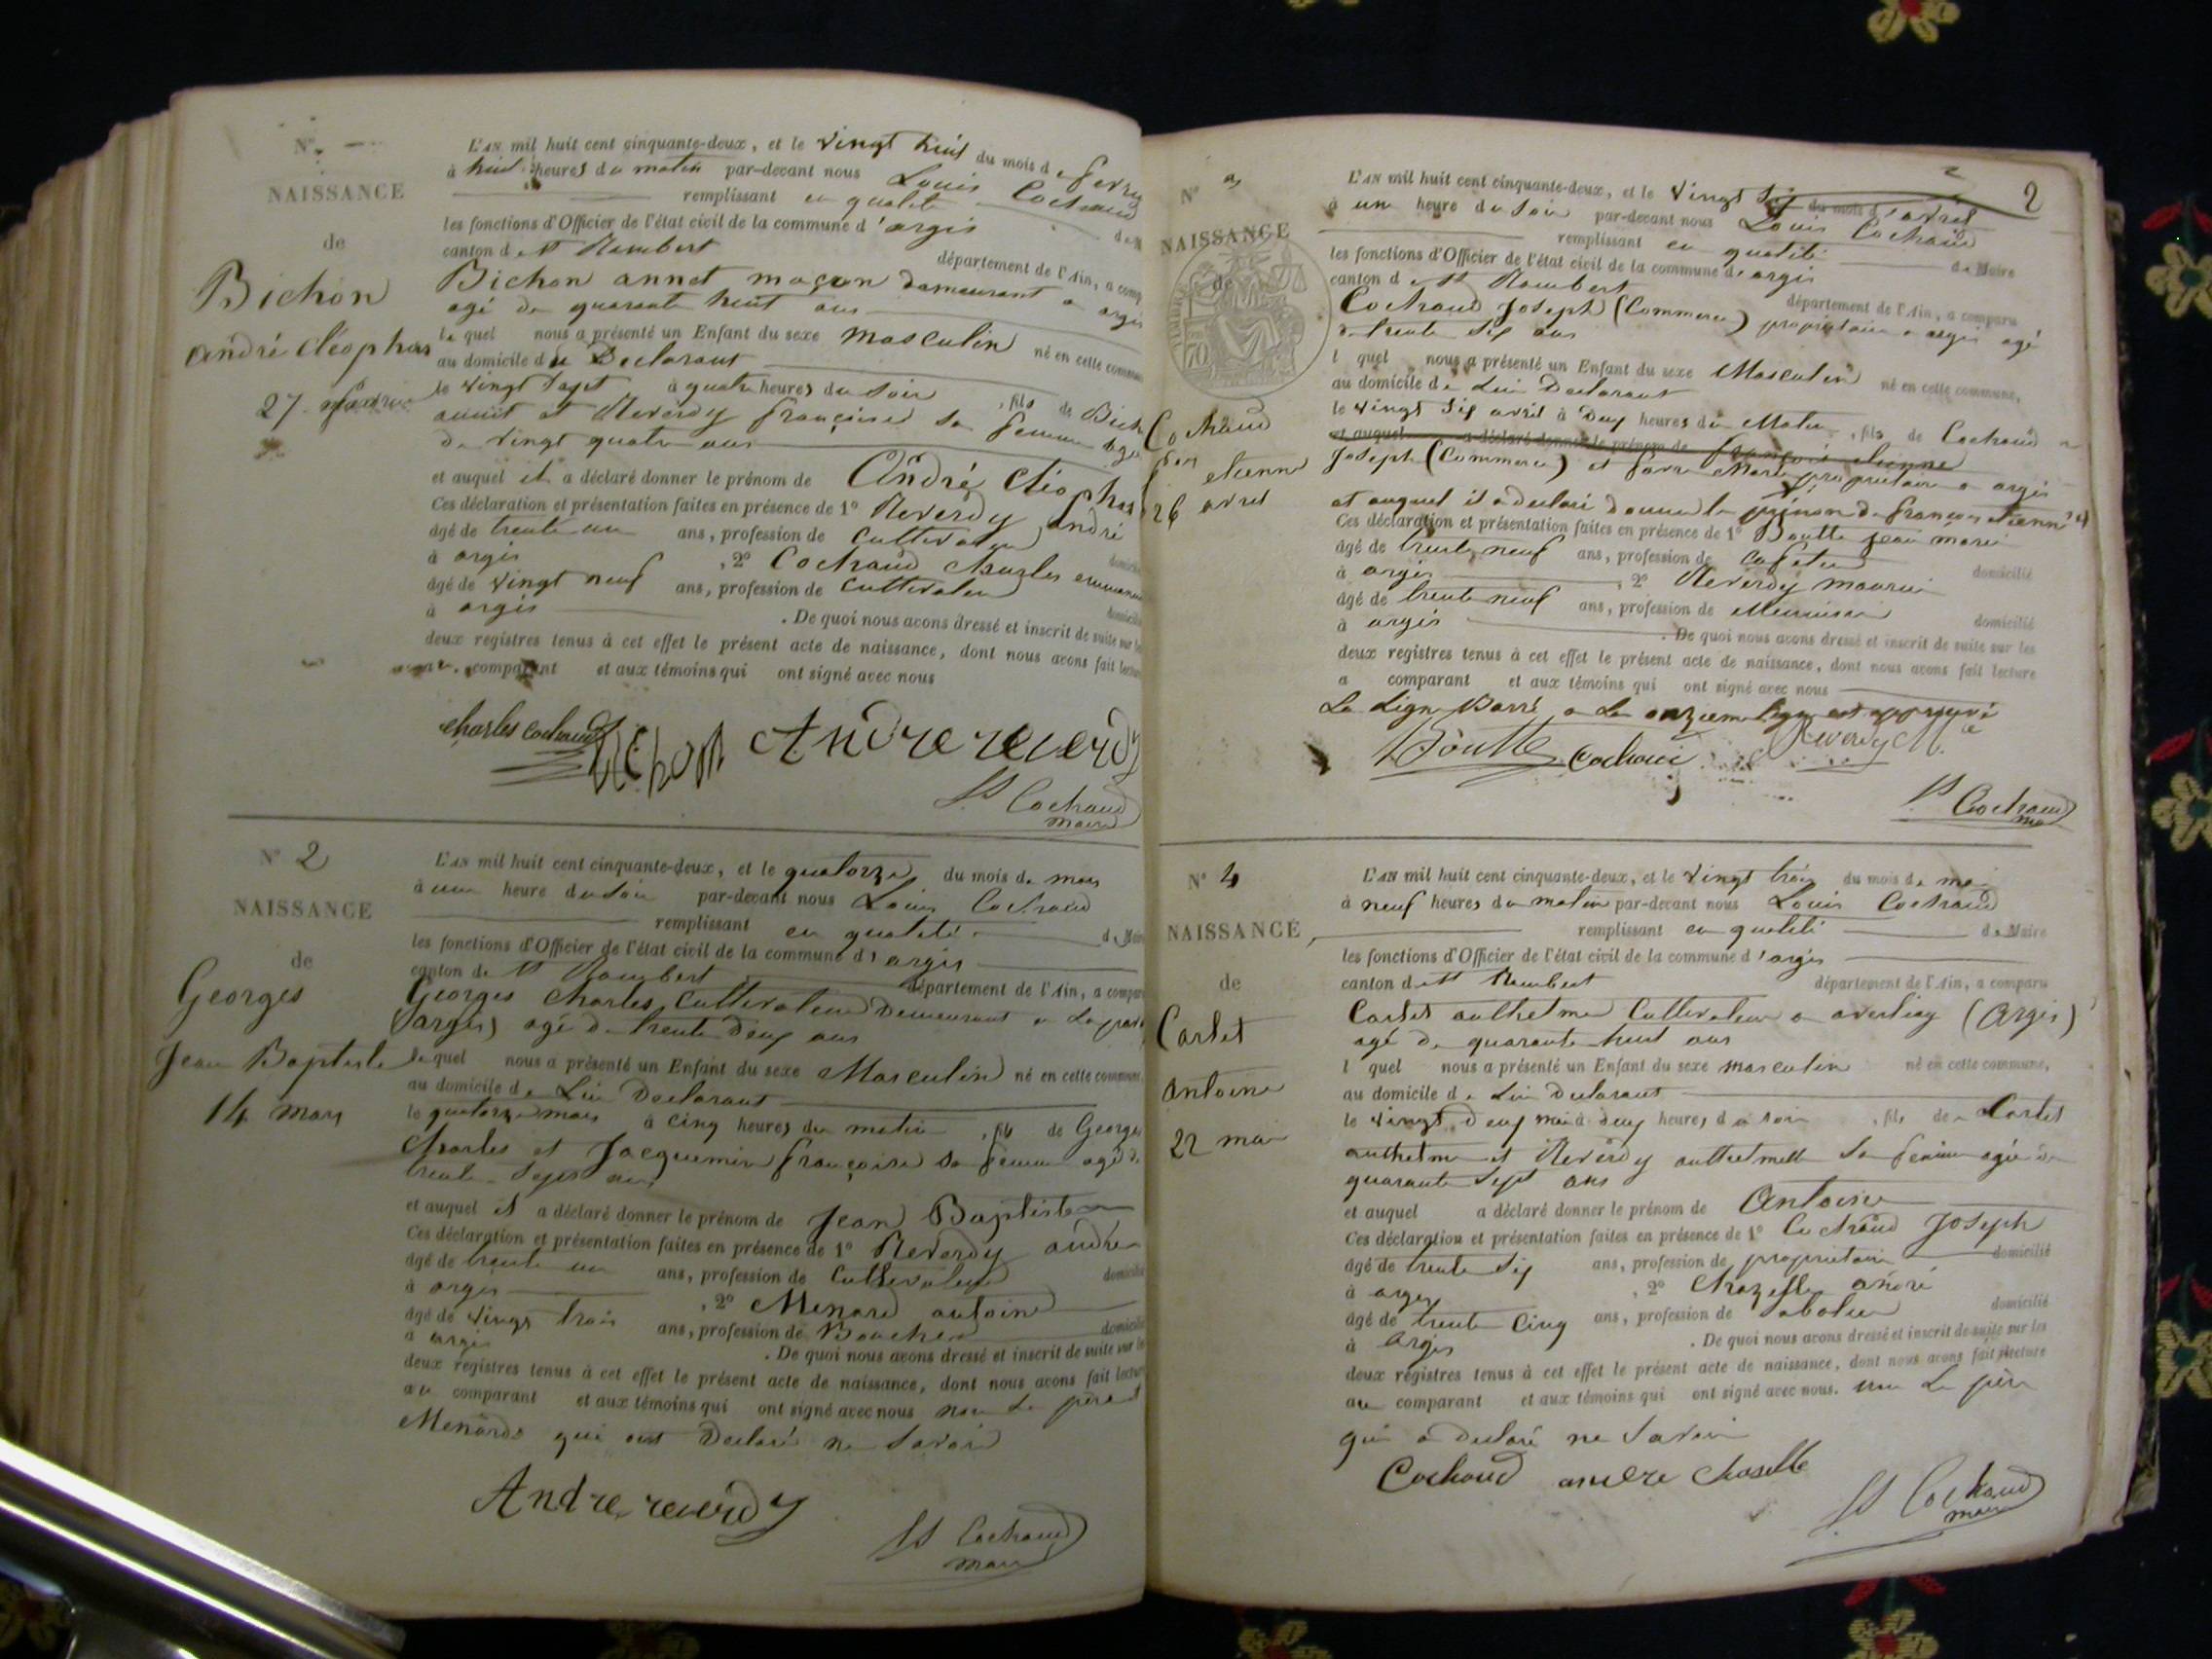 N°
NAISSANCE
de
Bichon
André Cléophas
27
L'AN mil huit cent cinquante-deux, et le vingt huit du mois de fevri
à huit heures du matin par-devant nous Louis Cochaud
remplissant en qualité
les fonctions d'Officier de l'état civil de la commune d'argis
canton de St Rambert département de l'Ain, a comp
Bichon annet maçon demeurant a argis
agé de quarante huit ans
le quel nous a présenté un Enfant du sexe masculin né en cette commune
au domicile du Declarant
le vingt sept à quatre heures du soir, fils de Bich
annet et Reverdy françoise sa femme agé
de vingt quatre ans
et auquel il a déclaré donner le prénom de André Cléophas
Ces déclaration et présentation faites en présence de 1° Reverdy André
âgé de trente un ans, profession de Cultivateur
à argis, 2° Cochaud Charles
âgé de vingt neuf ans, profession de Cultivateur
à argis. De quoi nous avons dressé et inscrit de suite sur les
deux registres tenus à cet effet le présent acte de naissance, dont nous avons fait lecture
au comparant et aux témoins qui ont signé avec nous
charles cochaud Bichon Andre reverdy
Ls Cochaud
maire
N° 2
NAISSANCE
de
Georges
Jean Baptiste
14 mars
L'AN mil huit cent cinquante-deux, et le quatorze du mois de mars
à une heure du soir par-devant nous Louis Cochaud
remplissant en qualité de Maire
les fonctions d'Officier de l'état civil de la commune d'argis
canton de St Rambert département de l'Ain, a comparu
Georges Charles Cultivateur Demeurant a
(argis) agé de trente deux ans
lequel nous a présenté un Enfant du sexe Masculin né en cette commune,
au domicile de Lui Declarant
le quatorze mars à cinq heures du matin, fils de Georges
Charles et Jacquemin françoise sa femme agé de
trente sept ans
et auquel il a déclaré donner le prénom de Jean Baptiste
Ces déclaration et présentation faites en présence de 1° Reverdy andré
âgé de trente un ans, profession de Cultivateur domicilié
à argis, 2° Menard antoine
âgé de vingt trois ans, profession de Boucher domicilié
à argis. De quoi nous avons dressé et inscrit de suite sur les
deux registres tenus à cet effet le présent acte de naissance, dont nous avons fait lecture
au comparant et aux témoins qui ont signé avec nous non le père et
Menard qui ont Declaré ne Savoir
Andre reverdy
Ls Cochaud
maire
2
N° 3
NAISSANCE
de
Cochaud
etienne
26 avril
L'AN mil huit cent cinquante-deux, et le vingt six du mois d'avril
à un heure du soir par-devant nous Louis Cochaud
remplissant en qualité de Maire
les fonctions d'Officier de l'état civil de la commune d'argis
canton de St Rambert département de l'Ain, a comparu
Cochaud Joseph (Commerce) propriétaire a argis agé
de trente six ans
l quel nous a présenté un Enfant du sexe Masculin né en cette commune,
au domicile de Lui Declarant
le vingt six avril à Deux heures du Matin, fils de Cochaud
et auquel a déclaré donner le prénom de françois etienne
Joseph (Commerce) et favre Marie propriétaire a argis
et auquel il a declaré donner le prénom de françois etienne
Ces déclaration et présentation faites en présence de 1° Boutte jean marie
âgé de trente neuf ans, profession de Cafetier domicilié
à argis, 2° Reverdy maurice
âgé de trente neuf ans, profession de Menuisier domicilié
à argis. De quoi nous avons dressé et inscrit de suite sur les
deux registres tenus à cet effet le présent acte de naissance, dont nous avons fait lecture
a comparant et aux témoins qui ont signé avec nous
La Ligne Barré a La onzieme ligne est approuvé
Boutte Cochaud Reverdy M.
Ls Cochaud
N° 4
NAISSANCE
de
Cartet
Antoine
22 mai
L'AN mil huit cent cinquante-deux, et le vingt trois du mois de mai
à neuf heures du matin par-devant nous Louis Cochaud
remplissant en qualité de Maire
les fonctions d'Officier de l'état civil de la commune d'argis
canton de St Rambert département de l'Ain, a comparu
Cartet anthelme Cultivateur a averliaz (Argis)
agé de quarante huit ans
l quel nous a présenté un Enfant du sexe masculin né en cette commune,
au domicile de Lui Declarant
le vingt deux mai à deux heures du soir, fils de Cartet
anthelme et Reverdy anthelmette Sa femme agée de
quarante sept ans
et auquel a déclaré donner le prénom de Antoine
Ces déclaration et présentation faites en présence de 1° Cochaud Joseph
âgé de trente six ans, profession de propriétaire domicilié
à argis, 2° Chazelle andré
âgé de trente cinq ans, profession de Sabotier domicilié
à Argis. De quoi nous avons dressé et inscrit de suite sur les
deux registres tenus à cet effet le présent acte de naissance, dont nous avons fait lecture
au comparant et aux témoins qui ont signé avec nous. non Le père
qui a declaré ne Savoir
Cochaud andre chaselle
Ls Cochaud
maire